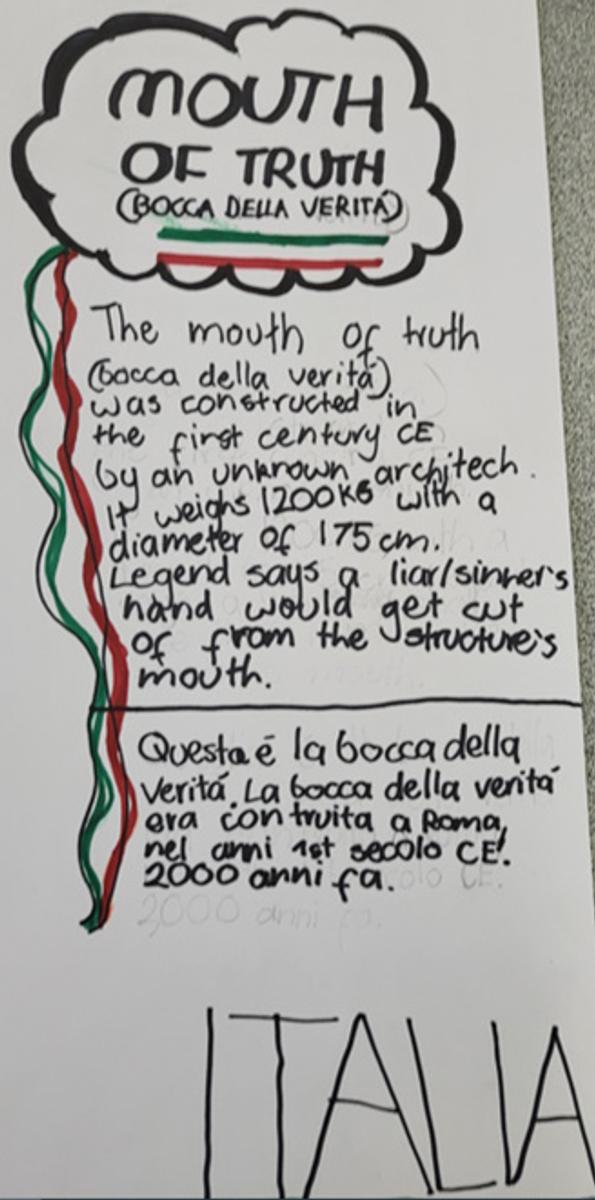 MOUTH
OF TRUTH
(BOCCA DELLA VERITÁ)
The mouth of truth
(bocca della veritá)
was constructed in
the first century CE
by an unknown architech.
It weighs 1200KG with a
diameter of 175cm.
Legend says a liar/sinner's
hand would get cut
of from the structure's
mouth.
Questa é la bocca della
veritá. La bocca della veritá
era contruita a Roma,
nel anni 1st secolo CE!
2000 anni fa.
2,000 anni fa.
ITALIA